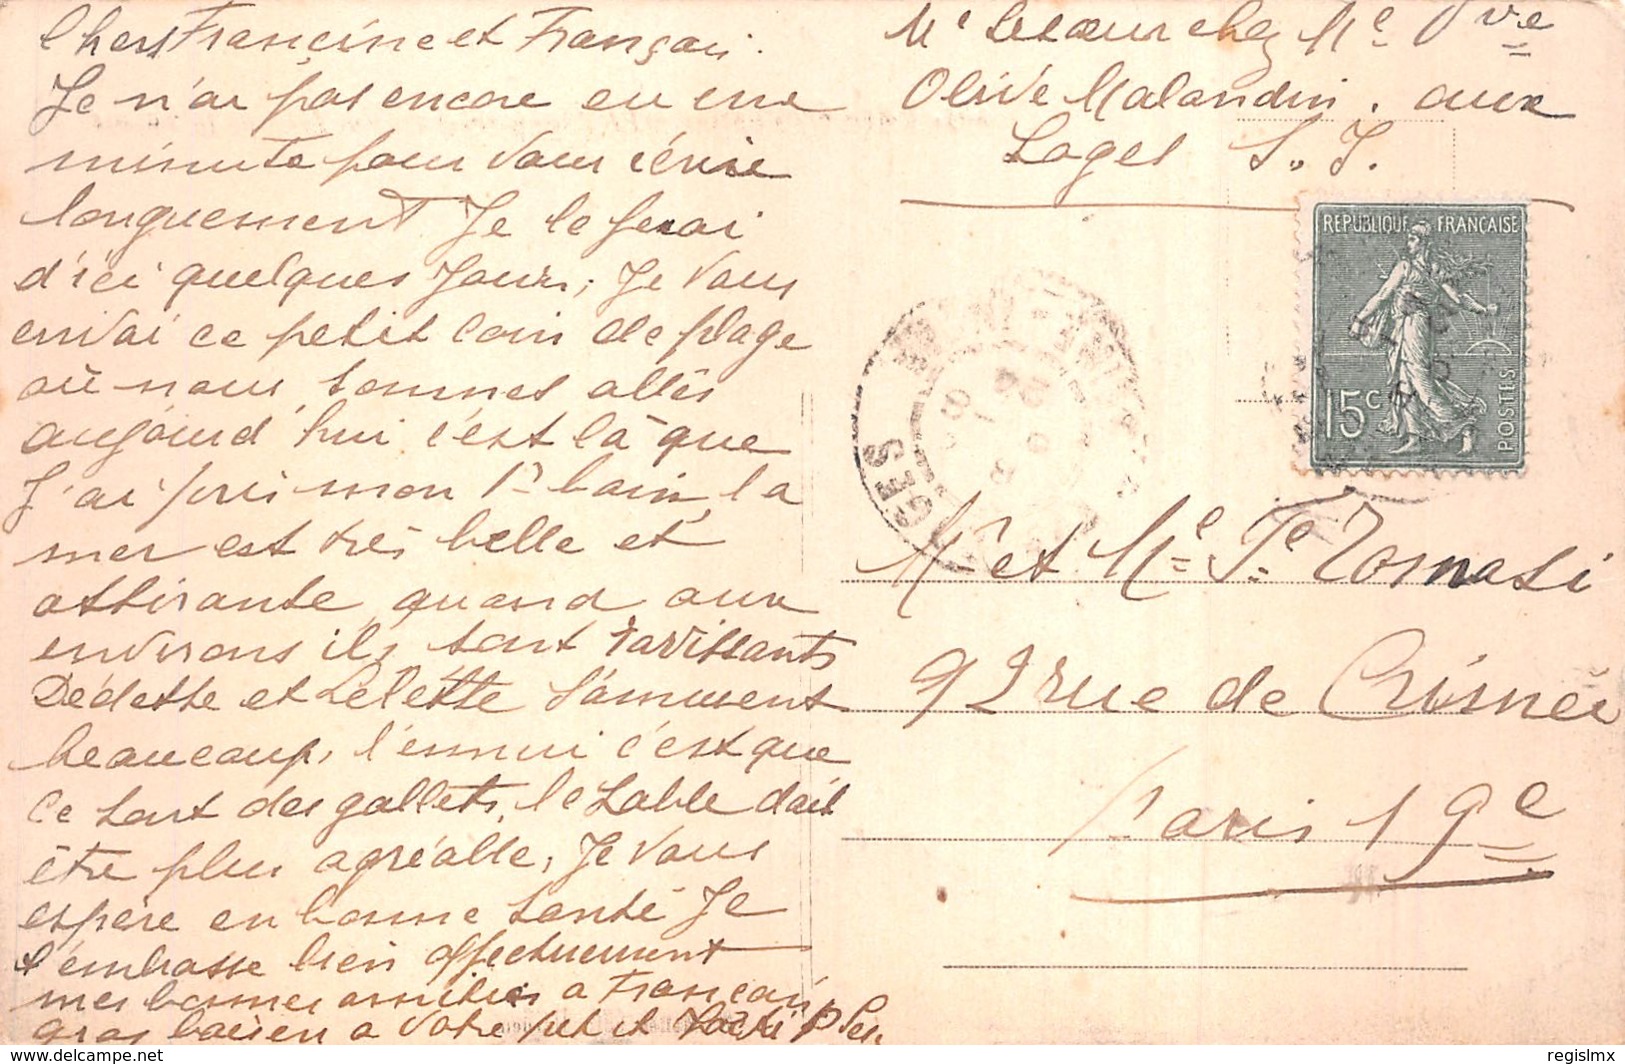 Chers Francine et Françai.
Je n'ai pas encore eu une
minute pour vous écrire
longuement Je le ferai
d'ici quelques jours, Je vous
envai ce petit coin de plage
où nous sommes allés
aujourd'hui c'est là que
J'ai pris mon 1r bain, la
mer est très belle et
attirante, quand aux
environs ils sont ravissants
Dédette et Lelette s'amusent
beaucoup, l'ennui c'est que
ce sont des gallets, le sable doit
être plus agréable, Je vous
espère en bonne santé Je
t'embrasse bien affectueusement
mes bonnes amitiés a Françai
gros baisers a votre
Me Lecoeur chez Me Vve
Olive Malandin. aux
Loges S. I.
REPUBLIQUE FRANÇAISE
15c
POSTES
GES
Mr et Me Te Tomasi
92 rue de Crimée
Paris 19e
delcampe.net
regislmx